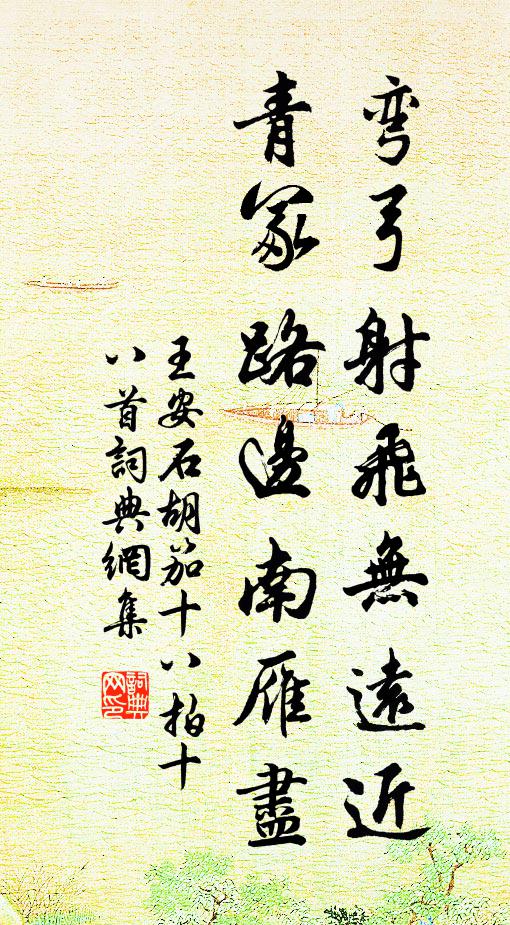 弯弓射飛無遠近
青冢路邊南雁盡
王安石胡笳十八拍十
八首詞典網集
詞典
网印